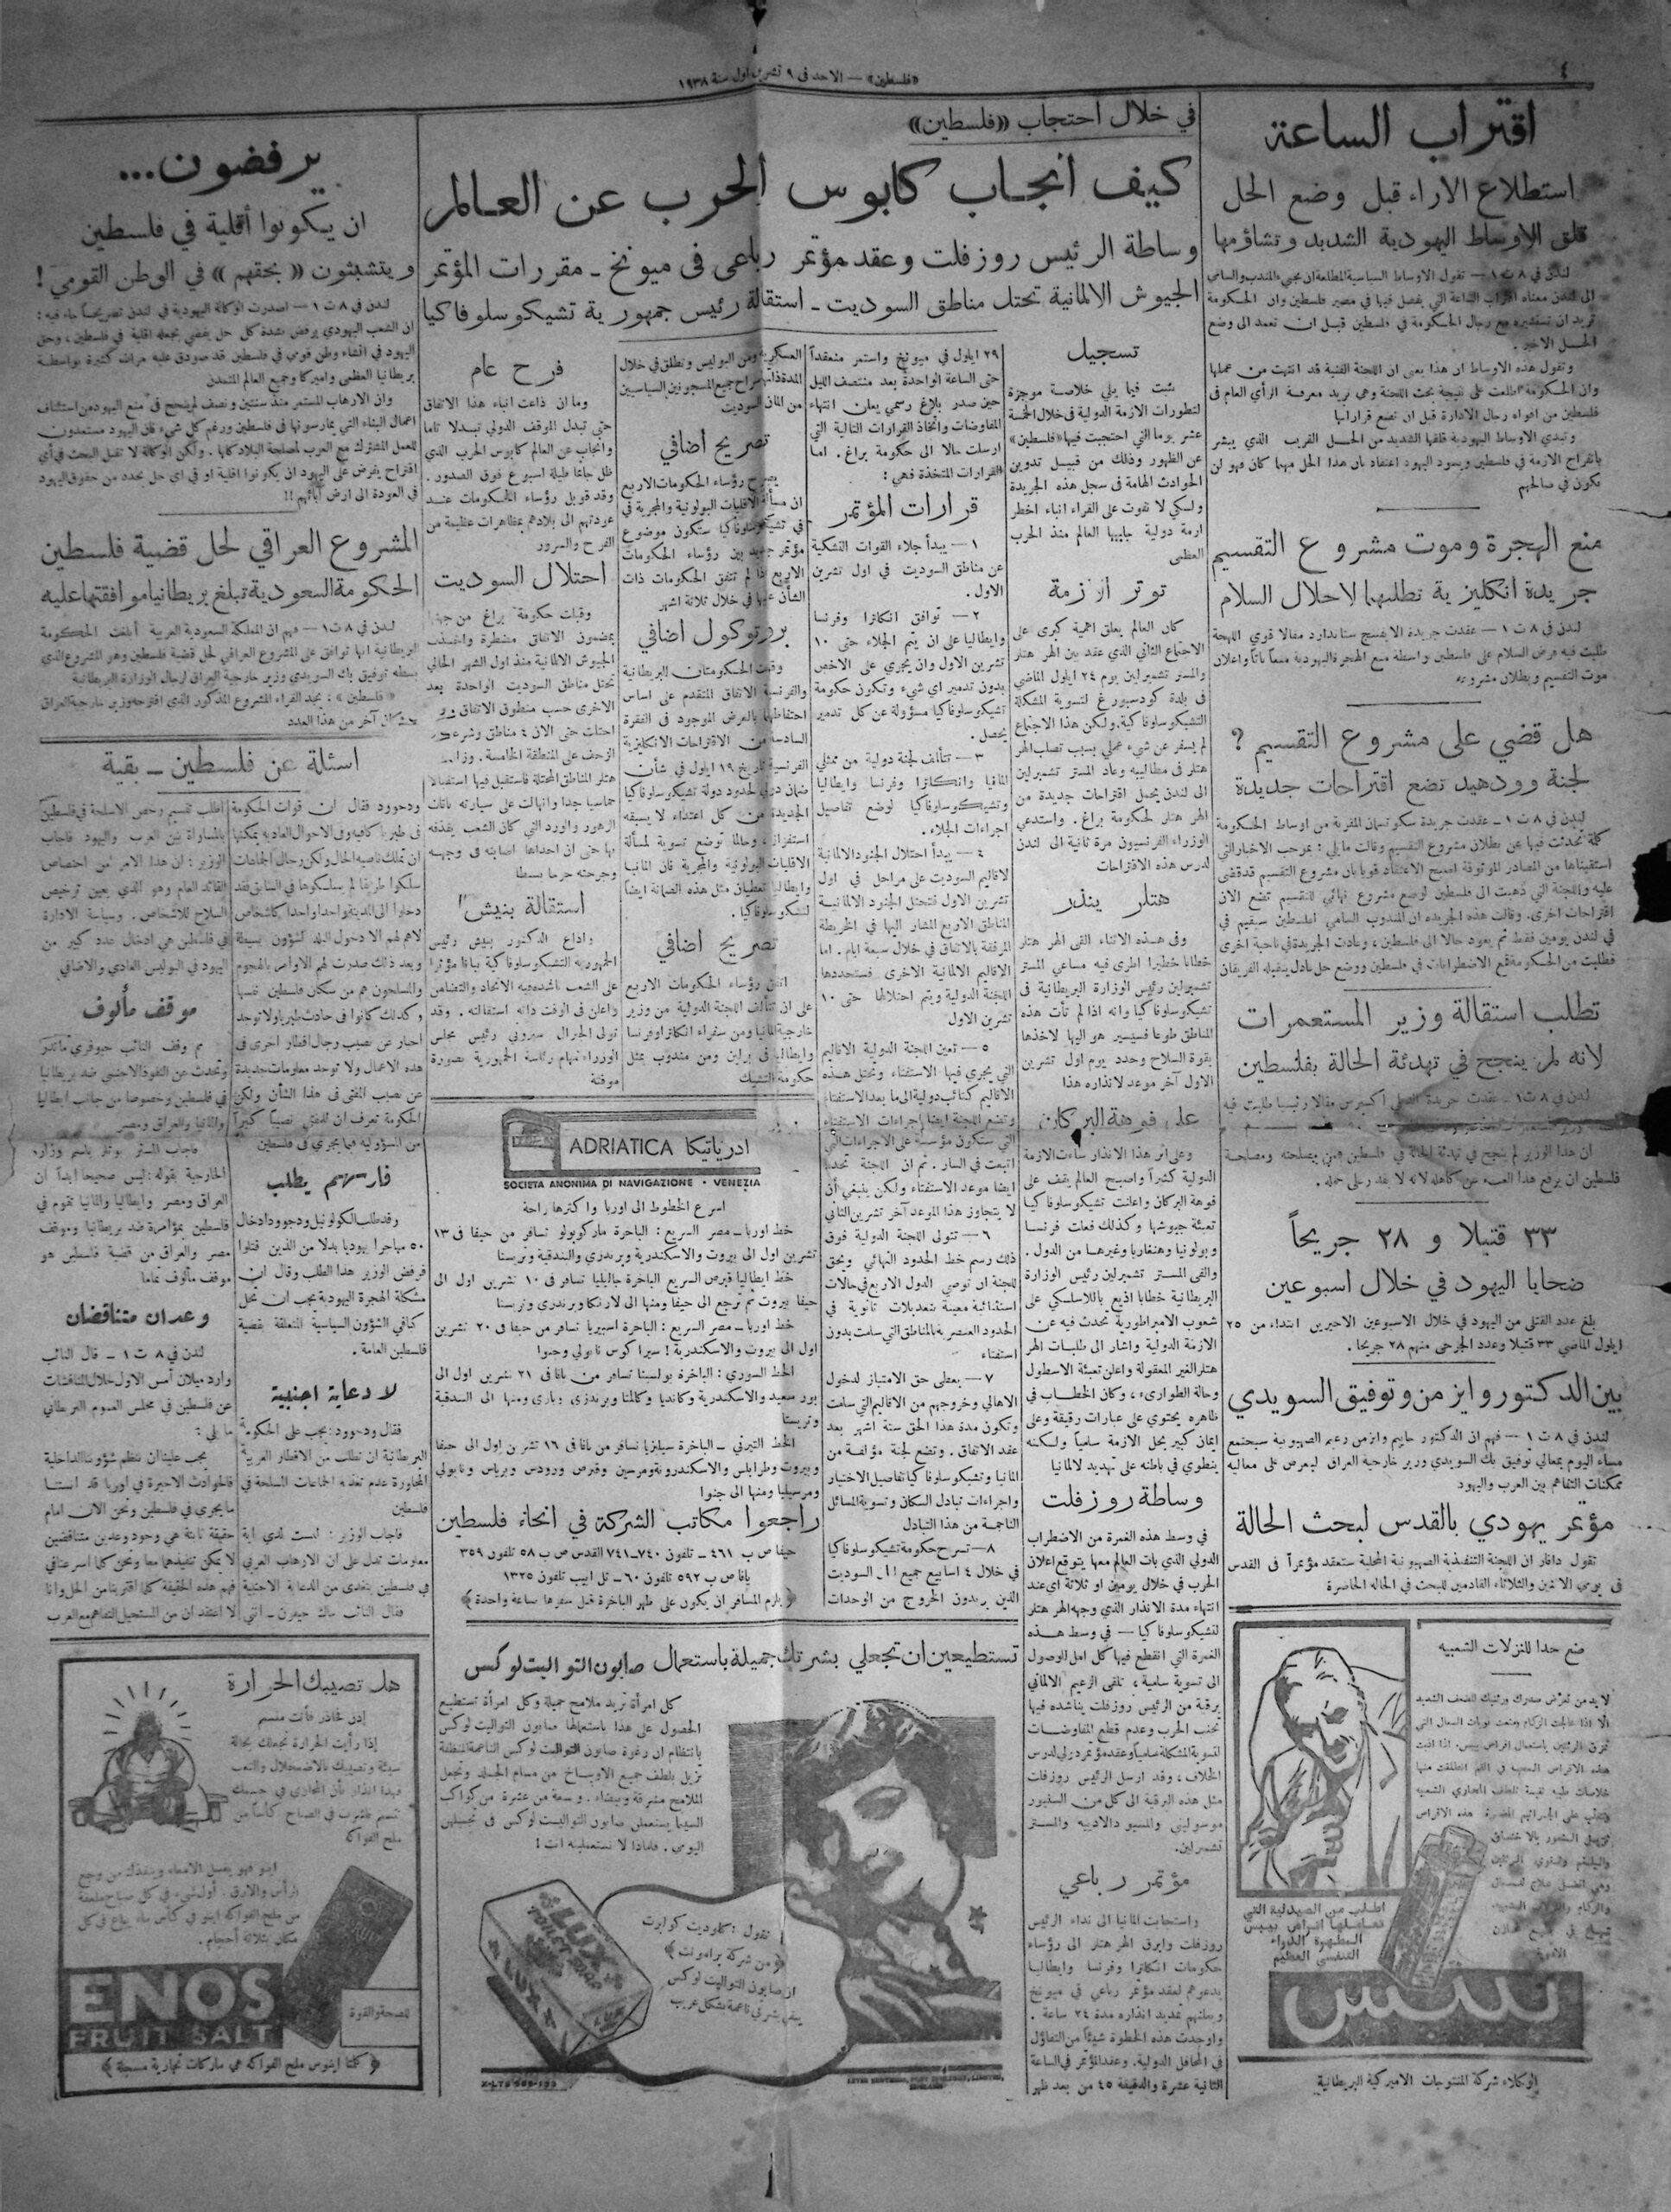 ٤
«فلسطين» — الاحد في ٩ تشرين اول سنة ١٩٣٨
اقتراب الساعة
استطلاع الاراء قبل وضع الحل
قلق الاوساط اليهودية الشديد وتشاؤمها
لندن في ٨ ت ١ — تقول الاوساط السياسية المطلعة ان مجيء المندوب السامي
الى لندن معناه اقتراب الساعة التي يفصل فيها في مصير فلسطين وان الحكومة
تريد ان تستشيره مع رجال الحكومة في فلسطين قبل ان تعمد الى وضع
الحل الاخير .
وتقول هذه الاوساط ان هذا يعني ان اللجنة الفنية قد انتهت من عملها
وان الحكومة اطلعت على نتيجة بحث اللجنة وهي تريد معرفة الرأي العام في
فلسطين من افواه رجال الادارة قبل ان تضع قراراتها
وتبدي الاوساط اليهودية قلقها الشديد من الحل القريب الذي يبشر
بانفراج الازمة في فلسطين ويسود اليهود اعتقاد بان هذا الحل مهما كان فهو لن
يكون في صالحهم
منع الهجرة وموت مشروع التقسيم
جريدة انكليزية تطلبهما لاحلال السلام
لندن في ٨ ت ١ — عقدت جريدة الايفننج ستاندارد مقالا قوي اللهجة
طلبت فيه فرض السلام على فلسطين بواسطة منع الهجرة اليهودية منعاً باتاً واعلان
موت التقسيم وبطلان مشروعه
هل قضي على مشروع التقسيم ؟
لجنة وودهيد تضع اقتراحات جديدة
لندن في ٨ ت ١ — عقدت جريدة سكوتسمان المقربة من اوساط الحكومة
كلمة تحدثت فيها عن بطلان مشروع التقسيم وقالت ما يلي : بموجب الاخبار التي
استقيناها من المصادر الموثوقة اصبح الاعتقاد قويا بان مشروع التقسيم قد قضي
عليه واللجنة التي ذهبت الى فلسطين لوضع مشروع نهائي للتقسيم تضع الان
اقتراحات اخرى . وقالت هذه الجريدة ان المندوب السامي لفلسطين سيقيم في
في لندن يومين فقط ثم يعود حالا الى فلسطين ، وعادت الجريدة في ناحية اخرى
فطلبت من الحكومة قمع الاضطرابات في فلسطين ووضع حل عادل يتقبله الفريقان
تطلب استقالة وزير المستعمرات
لانه لم ينجح في تهدئة الحالة بفلسطين
لندن في ٨ ت ١ — عقدت جريدة الديلي اكسبرس مقالا رئيسيا طلبت فيه
ان هذا الوزير لم ينجح في تهدئة الحالة في فلسطين فمن مصلحته ومصلحة
فلسطين ان يرفع هذا العبء عن كاهله لانه لا يقدر على حمله .
٣٣ قتيلا و ٢٨ جريحاً
ضحايا اليهود في خلال اسبوعين
بلغ عدد القتلى من اليهود في خلال الاسبوعين الاخيرين ابتداء من ٢٥
ايلول الماضي ٣٣ قتيلا وعدد الجرحى منهم ٢٨ جريحا .
بين الدكتور وايزمن وتوفيق السويدي
لندن في ٨ ت ١ — فهم ان الدكتور حاييم وايزمن زعيم الصهيونية سيجتمع
مساء اليوم بمعالي توفيق بك السويدي وزير خارجية العراق ليعرض على معاليه
ممكنات التفاهم بين العرب واليهود
مؤتمر يهودي بالقدس لبحث الحالة
تقول دافار ان اللجنة التنفيذية الصهيونية المحلية ستعقد مؤتمراً في القدس
في يومي الاثنين والثلاثاء القادمين للبحث في الحالة الحاضرة
ضع حدا للنزلات الشعبيه
اطلب من الصيدلية التي
تعاملها اقراص بيبس
المطهرة الدواء
التنفسي العظيم
بيبس
الوكلاء شركة المنتوجات الاميركية البريطانية
في خلال احتجاب «فلسطين»
كيف انجاب كابوس الحرب عن العالم
وساطة الرئيس روزفلت وعقد مؤتمر رباعي في ميونخ – مقررات المؤتمر
الجيوش الالمانية تحتل مناطق السوديت – استقالة رئيس جمهورية تشيكوسلوفاكيا
تسجيل
نثبت فيما يلي خلاصة موجزة
لتطورات الازمة الدولية في خلال الخمسة
عشر يوما التي احتجبت فيها «فلسطين»
عن الظهور وذلك من قبيل تدوين
الحوادث الهامة في سجل هذه الجريدة
ولكي لا تفوت على القراء انباء اخطر
ازمة دولية جابهها العالم منذ الحرب
العظمى
توتر الازمة
كان العالم يعلق اهمية كبرى على
الاجتماع الثاني الذي عقد بين الهر هتلر
والمستر تشمبرلين يوم ٢٤ ايلول الماضي
في بلدة كودسبورغ لتسوية المشكلة
التشيكوسلوفاكية . ولكن هذا الاجتماع
لم يسفر عن شيء عملي بسبب تصلب الهر
هتلر في مطاليبه وعاد المستر تشمبرلين
الى لندن يحمل اقتراحات جديدة من
الهر هتلر لحكومة براغ . واستدعي
الوزراء الفرنسيون مرة ثانية الى لندن
لدرس هذه الاقتراحات
هتلر ينذر
وفي هذه الاثناء القى الهر هتلر
خطابا خطيرا اطرى فيه مساعي المستر
تشمبرلين رئيس الوزارة البريطانية في
تشيكوسلوفاكيا وانه اذا لم تأت هذه
المناطق طوعا فسيسير هو اليها لاخذها
بقوة السلاح وحدد يوم اول تشرين
الاول آخر موعد لانذاره هذا
على فوهة البركان
وعلى اثر هذا الانذار ساءت الازمة
الدولية كثيراً واصبح العالم يقف على
فوهة البركان واعلنت تشيكوسلوفاكيا
تعبئة جيوشها وكذلك فعلت فرنسا
وبولونيا وهنغاريا وغيرها من الدول .
والقى المستر تشمبرلين رئيس الوزارة
البريطانية خطابا اذيع باللاسلكي على
شعوب الامبراطورية تحدث فيه عن
الازمة الدولية واشار الى طلبات الهر
هتلر الغير المعقولة واعلن تعبئة الاسطول
وحالة الطوارىء ، وكان الخطاب في
ظاهره يحتوي على عبارات رقيقة وعلى
ايمان كبير بحل الازمة سلمياً ولكنه
ينطوي في باطنه على تهديد لالمانيا
وساطة روزفلت
في وسط هذه الغمرة من الاضطراب
الدولي الذي بات العالم معها يتوقع اعلان
الحرب في خلال يومين او ثلاثة اي عند
انتهاء مدة الانذار الذي وجهه الهر هتلر
لتشيكوسلوفاكيا — في وسط هذه
الغمرة التي انقطع فيها كل امل للوصول
الى تسوية سلمية ، تلقى الزعيم الالماني
برقية من الرئيس روزفلت يناشده فيها
تجنب الحرب وعدم قطع المفاوضات
لتسوية المشكلة سلمياً وعقد مؤتمر دولي لدرس
الخلاف ، وقد ارسل الرئيس روزفلت
مثل هذه البرقية الى كل من السنيور
موسوليني والمسيو دالاديه والمستر
تشمبرلين .
مؤتمر رباعي
واستجابت المانيا الى نداء الرئيس
روزفلت وابرق الهر هتلر الى رؤساء
حكومات انكلترا وفرنسا وايطاليا
يدعوهم لعقد مؤتمر رباعي في ميونخ
ويبلغهم تمديد انذاره مدة ٢٤ ساعة .
واوجدت هذه الخطوة شيئاً من التفاؤل
في المحافل الدولية . وعقد المؤتمر في الساعة
الثانية عشرة والدقيقة ٤٥ من بعد ظهر
٢٩ ايلول في ميونخ واستمر منعقداً
حتى الساعة الواحدة بعد منتصف الليل
حين صدر بلاغ رسمي يعلن انتهاء
المفاوضات واتخاذ القرارات التالية التي
ارسلت حالا الى حكومة براغ . اما
القرارات المتخذة فهي :
قرارات المؤتمر
١ — يبدأ جلاء القوات التشيكية
عن مناطق السوديت في اول تشرين
الاول .
٢ — توافق انكلترا وفرنسا
وايطاليا على ان يتم الجلاء حتى ١٠
تشرين الاول وان يجري على الاخص
بدون تدمير اي شيء وتكون حكومة
تشيكوسلوفاكيا مسؤولة عن كل تدمير
يحصل .
٣ — تتألف لجنة دولية من ممثلي
المانيا وانكلترا وفرنسا وايطاليا
وتشيكوسلوفاكيا لوضع تفاصيل
اجراءات الجلاء .
٤ — يبدأ احتلال الجنود الالمانية
لاقاليم السوديت على مراحل في اول
تشرين الاول فتحتل الجنود الالمانية
المناطق الاربع المشار اليها في الخريطة
المرفقة بالاتفاق في خلال سبعة ايام . اما
الاقاليم الالمانية الاخرى فستحددها
اللجنة الدولية ويتم احتلالها حتى ١٠
تشرين الاول
٥ — تعين اللجنة الدولية الاقاليم
التي يجري فيها الاستفتاء وتحتل هذه
الاقاليم كتائب دولية الى ما بعد الاستفتاء
وتضع اللجنة ايضا اجراءات الاستفتاء
التي ستكون مؤسسة على الاجراءات التي
اتبعت في السار . ثم ان اللجنة تحدد
ايضا موعد الاستفتاء ولكن ينبغي أن
لا يتجاوز هذا الموعد آخر تشرين الثاني
٦ — تتولى اللجنة الدولية فوق
ذلك رسم خط الحدود النهائي ويحق
للجنة ان توصي الدول الاربع في حالات
استثنائية معينة بتعديلات ثانوية في
الحدود العنصرية بالمناطق التي سلمت بدون
استفتاء
٧ — يعطى حق الامتياز لدخول
الاهالي وخروجهم من الاقاليم التي سلمت
وتكون مدة هذا الحق ستة اشهر بعد
عقد الاتفاق . وتضع لجنة مؤلفة من
المانيا وتشيكوسلوفاكيا تفاصيل الاختيار
واجراءات تبادل السكان وتسوية المسائل
الناجمة من هذا التبادل
٨ — تسرح حكومة تشيكوسلوفاكيا
في خلال ٤ اسابيع جميع السوديت
الذين يريدون الخروج من الوحدات
العسكرية ومن البوليس وتطلق في خلال
المدة ذاتها سراح جميع المسجونين السياسيين
من المان السوديت
تصريح اضافي
يصرح رؤساء الحكومات الاربع
ان مسألة الاقليات البولونية والمجرية في
في تشيكوسلوفاكيا ستكون موضوع
مؤتمر جديد بين رؤساء الحكومات
الاربع اذا لم تتفق الحكومات ذات
الشأن عليها في خلال ثلاثة اشهر
بروتوكول اضافي
وقعت الحكومتان البريطانية
والفرنسية الاتفاق المتقدم على اساس
احتفاظهما بالعرض الموجود في الفقرة
السادسة من الاقتراحات الانكليزية
الفرنسية تاريخ ١٩ ايلول في شأن
ضمان دولي لحدود دولة تشيكوسلوفاكيا
الجديدة من كل اعتداء لا يسبقه
استفزاز ، وحالما توضع تسوية لمسألة
الاقليات البولونية والمجرية فان المانيا
وايطاليا تعطيان مثل هذه الضمانة ايضاً
لتشيكوسلوفاكيا .
تصريح اضافي
اتفق رؤساء الحكومات الاربع
على ان تتألف اللجنة الدولية من وزير
خارجية المانيا ومن سفراء انكلترا وفرنسا
وايطاليا في برلين ومن مندوب يمثل
حكومة التشيك
فرح عام
وما ان ذاعت انباء هذا الاتفاق
حتى تبدل الموقف الدولي تبدلا تاما
وانجاب عن العالم كابوس الحرب الذي
ظل جاثما طيلة اسبوع فوق الصدور .
وقد قوبل رؤساء الحكومات عند
عودتهم الى بلادهم بمظاهرات عظيمة من
الفرح والسرور
احتلال السوديت
وقبلت حكومة براغ من جهتها
بمضمون الاتفاق مضطرة واخذت
الجيوش الالمانية منذ اول الشهر الحالي
تحتل مناطق السوديت الواحدة بعد
الاخرى حسب منطوق الاتفاق وقد
احتلت حتى الان ٤ مناطق وشرعت في
الزحف على المنطقة الخامسة . وزار
هتلر المناطق المحتلة فاستقبل فيها استقبالا
حماسيا جدا وانهالت على سيارته باقات
الزهور والورد التي كان الشعب يقذفه
بها حتى ان احداها اصابته في وجهه
وجرحته جرحا بسيطا
استقالة بنيش
واذاع الدكتور بنيش رئيس
الجمهورية التشيكوسلوفاكية بيانا مؤثرا
على الشعب ناشده فيه الاتحاد والتضامن
واعلن في الوقت ذاته استقالته . وقد
تولى الجنرال سيروفي رئيس مجلس
الوزراء مهام رئاسة الجمهورية بصورة
موقتة
ادرياتيكا ADRIATICA
SOCIETA ANONIMA DI NAVIGAZIONE • VENEZIA
اسرع الخطوط الى اوربا واكثرها راحة
خط اوربا – مصر السريع : الباخرة ماركوبولو تسافر من حيفا في ١٣
تشرين اول الى بيروت والاسكندرية وبرندزي والبندقية وتريستا
خط ايطاليا قبرص السريع الباخرة جاليليا تسافر في ١٠ تشرين اول الى
حيفا بيروت ثم ترجع الى حيفا ومنها الى لارنكا وبرندزي وتريستا
خط اوربا – مصر السريع : الباخرة اسبيريا تسافر من حيفا في ٢٠ تشرين
اول الى بيروت والاسكندرية ! سيراكوس نابولي وجنوا
الخط السوري : الباخرة بولسينا تسافر من يافا في ٢١ تشرين اول الى
بور سعيد والاسكندرية وكانديا وكالمتا وبرندزي وباري ومنها الى البندقية
وتريستا
الخط التيرني – الباخرة سيليزيا تسافر من يافا في ١٦ تشرين اول الى حيفا
وبيروت وطرابلس والاسكندرونة ومرسين وقبرص ورودس وبرياس ونابولي
ومرسيليا ومنها الى جنوا
راجعوا مكاتب الشركة في انحاء فلسطين
حيفا ص ب ٤٦١ – تلفون ٧٤٠–٧٤١ القدس ص ب ٥٨ تلفون ٣٥٩
يافا ص ب ٥٩٢ تلفون ٦٠ – تل ابيب تلفون ١٣٢٥
﴿ يلزم المسافر ان يكون على ظهر الباخرة قبل سفرها بساعة واحدة ﴾
تستطيعين ان تجعلي بشرتك جميلة باستعمال صابون التواليت لوكس
كل امرأة تريد ملامح جميلة وكل امرأة تستطيع
الحصول على هذا باستعمالها صابون التواليت لوكس
بانتظام ان رغوة صابون التواليت لوكس الناعمة المنظفة
تزيل بلطف جميع الاوساخ من مسام الجلد وتجعل
الملامح مشرقة وبيضاء . وتسعة من عشرة من كواكب
السينما يستعملن صابون التواليت لوكس في تجميلهن
اليومي . فلماذا لا تستعملينه انت !
تقول : كلوديت كولبرت
﴿ من شركة برامونت ﴾
ان صابون التواليت لوكس
يبقي بشرتي ناعمة بشكل غريب
LUX
TOILET SOAP
LUX
LEVER BROTHERS, PORT SUNLIGHT, LIMITED, ENGLAND
يرفضون ...
ان يكونوا أقلية في فلسطين
ويتشبثون «بحقهم» في الوطن القومي !
لندن في ٨ ت ١ — اصدرت الوكالة اليهودية في لندن تصريحاً جاء فيه :
ان الشعب اليهودي يرفض بشدة كل حل يقضي بجعله اقلية في فلسطين ، وحق
اليهود في انشاء وطن قومي في فلسطين قد صودق عليه مرات كثيرة بواسطة
بريطانيا العظمى واميركا وجميع العالم المتمدن
وان الارهاب المستمر منذ سنتين ونصف لم ينجح في منع اليهود من استئناف
اعمال البناء التي يمارسونها في فلسطين ورغم كل شيء فان اليهود مستعدون
للعمل المشترك مع العرب لمصلحة البلاد كلها . ولكن الوكالة لا تقبل البحث في أي
اقتراح يفرض على اليهود ان يكونوا اقلية او في اي حل يحدد من حقوق اليهود
في العودة الى ارض آبائهم !!
المشروع العراقي لحل قضية فلسطين
الحكومة السعودية تبلغ بريطانيا موافقتها عليه
لندن في ٨ ت ١ — فهم ان المملكة السعودية العربية أبلغت الحكومة
البريطانية انها توافق على المشروع العراقي لحل قضية فلسطين وهو المشروع الذي
بسطه توفيق بك السويدي وزير خارجية العراق لرجال الوزارة البريطانية
« فلسطين » : يجد القراء المشروع المذكور الذي اقترحه وزير خارجية العراق
بمكان آخر من هذا العدد
اسئلة عن فلسطين – بقية
ودجوود فقال ان قوات الحكومة
في طبريا كافية وفي الاحوال العادية يمكنها
ان تملك ناصية الحال ولكن رجال العصابات
سلكوا طريقا لم يسلكوها في السابق فقد
دخلوا الى المدينة واحدا واحدا كاشخاص
لاهم لهم الا دخول البلد لشؤون بسيطة
وبعد ذلك صدرت لهم الاوامر بالهجوم
والمسلحون هم من سكان فلسطين نفسها
وكذلك كانوا في حادث طبريا ولا توجد
اخبار عن نصيب رجال اقطار اخرى في
هذه الاعمال ولا توجد معلومات جديدة
عن نصيب المفتي في هذا الشأن ولكن
الحكومة تعرف ان للمفتي نصيباً كبيراً
من المسؤولية فيما يجري في فلسطين
فارسهم يطلب
وقد طلب الكولونيل ودجوود ادخال
٥٠ مهاجرا يهوديا بدلا من الذين قتلوا
فرفض الوزير هذا الطلب وقال ان
مشكلة الهجرة اليهودية يجب ان تحل
كباقي الشؤون السياسية المتعلقة بقضية
فلسطين العامة .
لا دعاية اجنبية
فقال ودجوود : يجب على الحكومة
البريطانية ان تطلب من الاقطار العربية
المجاورة عدم تغذية الجماعات المسلحة في
فلسطين
فاجاب الوزير : ليست لدي اية
معلومات تدل على ان الارهاب العربي
في فلسطين يتغذى من الدعاية الاجنبية
فقال النائب ماك جيفرن – انني
اطلب تقسيم رخص الاسلحة في فلسطين
بالمساواة بين العرب واليهود فاجاب
الوزير : ان هذا الامر من اختصاص
القائد العام وهو الذي يعين ترخيص
السلاح للاشخاص . وسياسة الادارة
في فلسطين هي ادخال عدد كبير من
اليهود في البوليس العادي والاضافي
موقف مألوف
ثم وقف النائب جوفري ماندر
وتحدث عن النفوذ الاجنبي ضد بريطانيا
في فلسطين وخصوصا من جانب ايطاليا
والمانيا والعراق ومصر
فاجاب المستر بوتلر باسم وزارة
الخارجية بقوله : ليس صحيحا ابداً ان
العراق ومصر وايطاليا والمانيا تقوم في
فلسطين بمؤامرة ضد بريطانيا وموقف
مصر والعراق من قضية فلسطين هو
موقف مألوف تماما
وعدان متناقضان
لندن في ٨ ت ١ – قال النائب
وارد ميلان أمس الاول خلال المناقشات
عن فلسطين في مجلس العموم البريطاني
ما يلي :
يجب علينا ان ننظم شؤوننا الداخلية
فالحوادث الاخيرة في اوربا قد انستنا
ما يجري في فلسطين ونحن الان امام
حقيقة ثابتة هي وجود وعدين متناقضين
لا يمكن تنفيذهما معا ونحن كلما اسرعنا في
فهم هذه الحقيقة كلما اقتربنا من الحل وانا
لا اعتقد ان من المستحيل التفاهم مع العرب
هل تصيبك الحرارة
إذن فحاذر فأنت متسم
إذا رأيت الحرارة تجعلك بحالة
سيئة وتصيبك بالاضمحلال والتعب
فهذا انذار بأن المجاري في جسمك
تتسم فاشرب في الصباح كأساً من
ملح الفواكه
اينو فهو يغسل الامعاء وينقذك من وجع
الرأس والارق . أول شيء في كل صباح ملعقة
من ملح الفواكه اينو في كأس ماء يباع في كل
مكان بثلاثة أحجام .
ENOS
FRUIT SALT
للصحة والقوة
﴿ كلمتا اينوس ملح الفواكه هي ماركات تجارية مسجلة ﴾